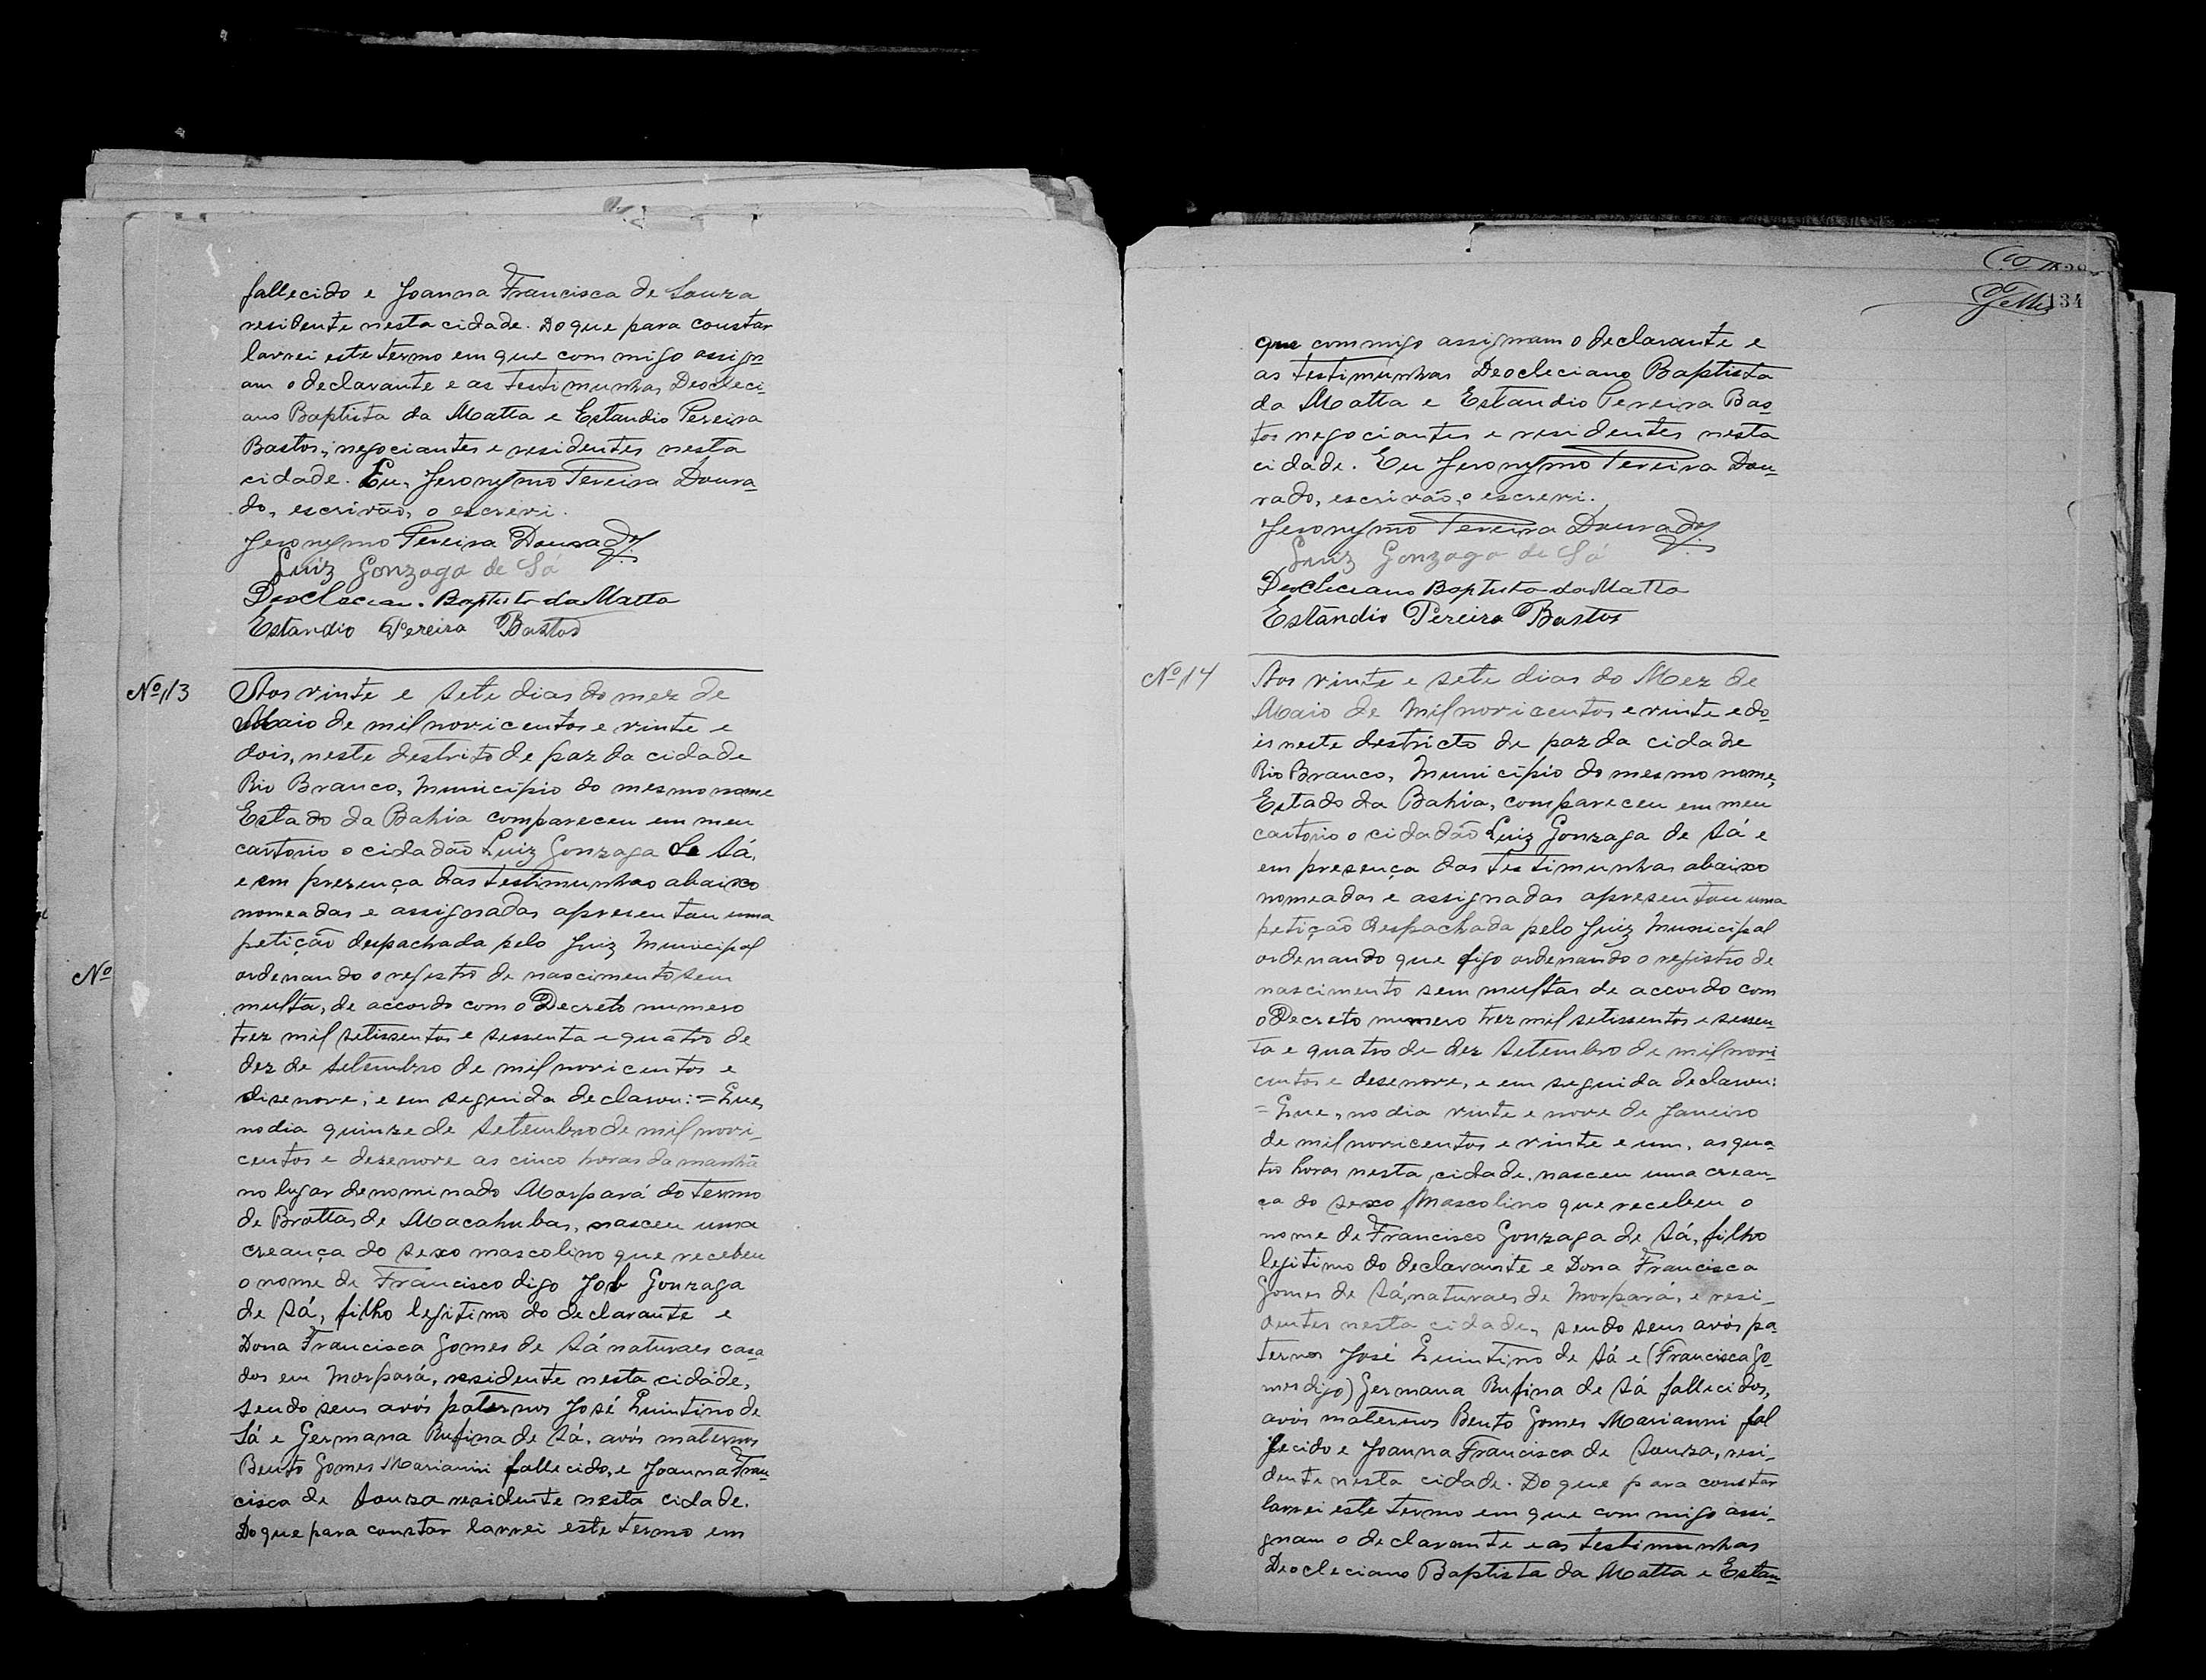 fallecido e Joanna Francisca de Souza
residente nesta cidade. Do que para constar
lavrei este termo em que com migo assign
am o declarante e as testimunhas Deocleci-
ano Baptista da Matta e Estandio Pereira
Bastos, negociantes e residentes nesta
cidade. Eu, Jeronymo Pereira Doura-
do, escrivão, o escrevi.
Jeronymo Pereira Dourado
Luiz Gonzaga de Sá
Deocleciano Baptista da Matta
Estandio Pereira Bastos
Nº 113
Aos vinte e sete dias do mez de
Maio de mil novicentos e vinte e
dois, neste destrito de paz da cidade
Rio Branco, Municipio do mesmo nome
Estado da Bahia compareceu em meu
cartorio o cidadão Luiz Gonzaga de Sá,
e em presença das testimunhas abaixo
nomeadas e assignadas apresentou uma
petição despachada pelo Juiz Municipal
Nº
ordenando o registro de nascimento sem
multa, de accordo com o Decreto numero
trez mil setissentos e sessenta e quatro de
dez de Setembro de mil novicentos e
disenove, e em seguida declarou: = Que,
no dia quinze de Setembro de mil novi-
centos e dezenove as cinco horas da manhã
no lugar denominado Morpará do termo
de Brottas de Macahubas, nasceu uma
creança do sexo mascolino que recebeu
o nome de Francisco digo Job Gonzaga
de Sá, filho legitimo do declarante e
Dona Francisca Gomes de Sá naturaes casa
dos em Morpará, residente nesta cidade,
sendo seus avós paternos José Quintino de
Sá e Germana Rufina de Sá, avós maternos
Bento Gomes Marianni fallecido, e Joanna Fran-
cisca de Souza residente nesta cidade.
Do que para constar lavrei este termo em
134
que commigo assignam o declarante e
as testimunhas Deocleciano Baptista
da Matta e Estandio Pereira Bas
tos negociantes e residentes nesta
cidade. Eu Jeronymo Pereira Dou-
rado, escrivão, o escrevi.
Jeronymo Pereira Dourado
Luiz Gonzaga de Sá
Deocleciano Baptista da Matta
Estandio Pereira Bastos
Nº 114
Aos vinte e sete dias do Mez de
Maio de Mil novicentos e vinte e do-
is neste destricto de paz da cidade
Rio Branco, Municipio do mesmo nome,
Estado da Bahia, compareceu em meu
cartorio o cidadão Luiz Gonzaga de Sá e
em presença das testimunhas abaixo
nomeadas e assignadas apresentou uma
petição despachada pelo Juiz Municipal
ordenando que digo ordenando o registro de
nascimento sem multas de accordo com
o Decreto numero trez mil setissentos e sessen-
ta e quatro de dez Setembro de mil novi-
centos e desenove, e em seguida declarou:
= Que, no dia vinte e nove de Janeiro
de mil novicentos e vinte e um, as qua-
tro horas nesta cidade, nasceu uma crean-
ça do sexo Mascolino que recebeu o
nome de Francisco Gonzaga de Sá, filho
legitimo do declarante e Dona Francisca
Gomes de Sá, naturaes de Morpará, e resi-
dentes nesta cidade, sendo seus avós pa-
ternos José Quintino de Sá e (Francisca Go-
mes digo) Germana Rufina de Sá fallecidos,
avós maternos Bento Gomes Marianni fal
lecido e Joanna Francisca de Souza, resi-
dente nesta cidade. Do que para constar
lavrei este termo em que com migo assi-
gnam o declarante e as testimunhas
Deocleciano Baptista da Matta e Estan-